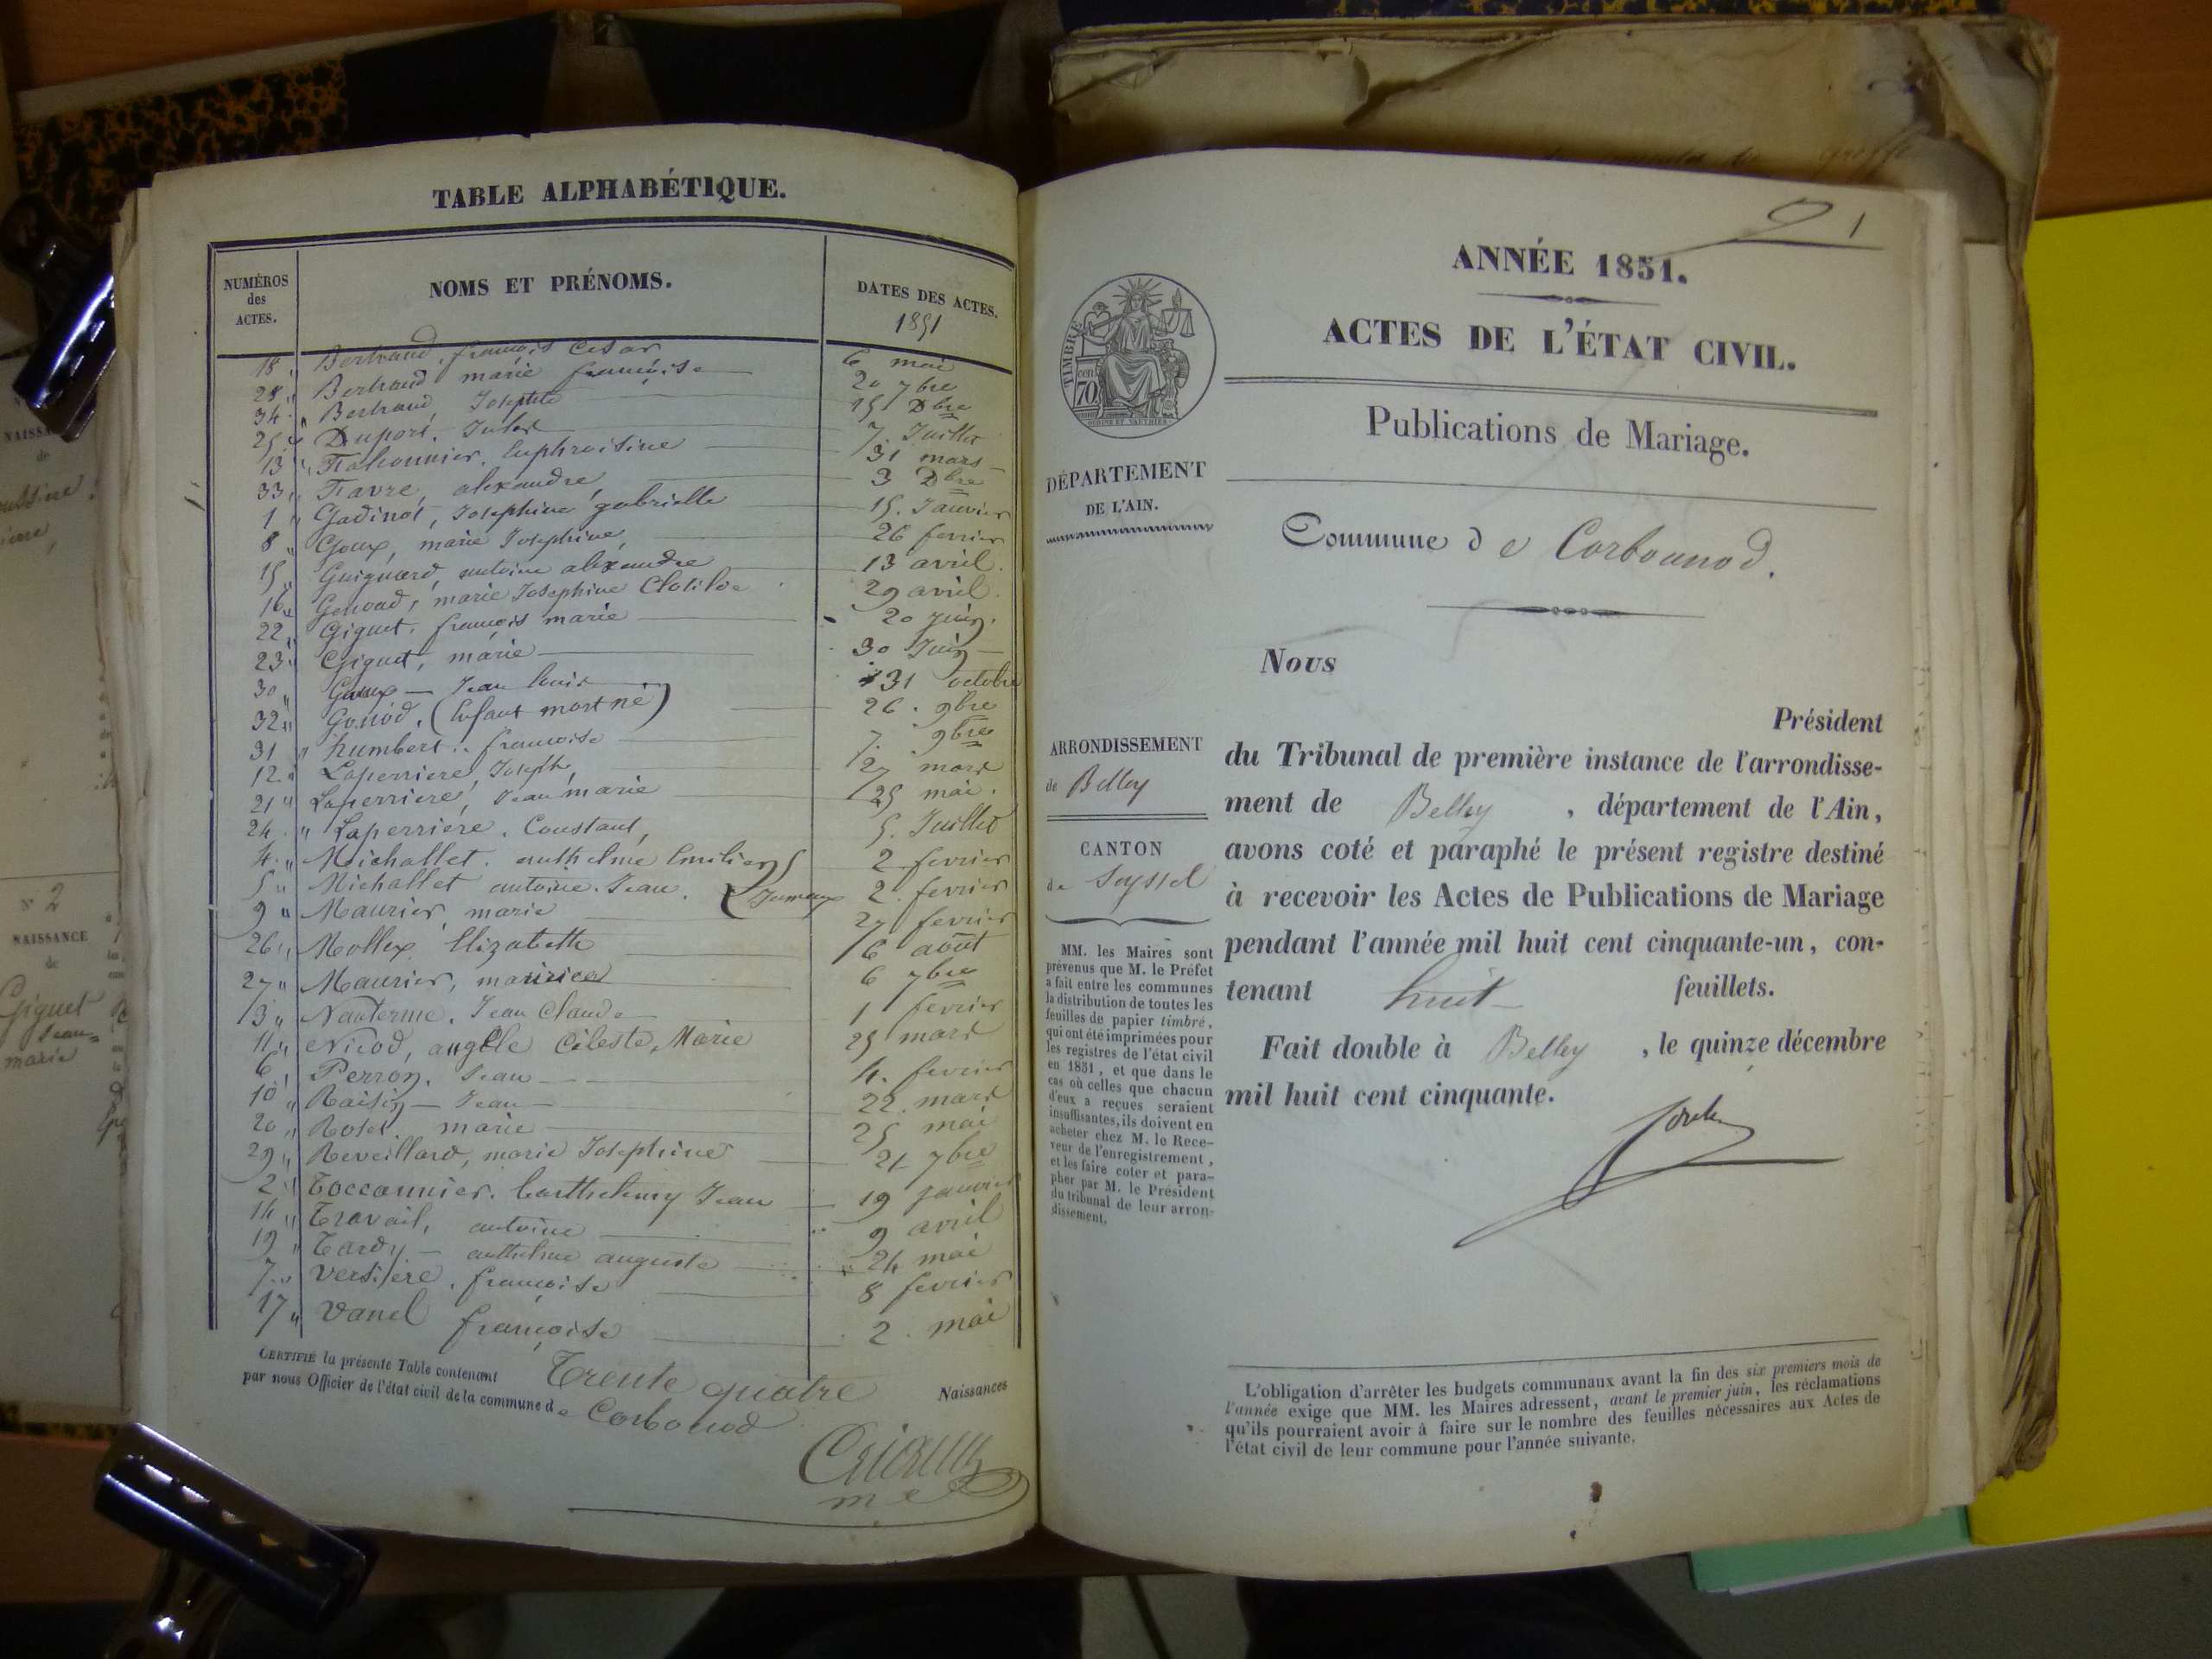 TABLE ALPHABÉTIQUE.
NUMÉROS
des
ACTES.
NOMS ET PRÉNOMS.
DATES DES ACTES.
1851
18 " Bertrand, françois Cesar 6 mai
28 " Bertrand marie françoise 20 7bre
34 " Bertrand Josephte 15 Dbre
25 " Duport, Jules 7. Juillet
13 " Falconnier. Euphroisine 31 mars
33 " Favre, alexandre, 3 Dbre
1 " Gadinot, Josephine gabrielle 15. Janvier
8 " Goux, marie Josephine, 26 fevrier
15 " Guignard, antoine alexandre 13 avril.
16 " Genoud, marie Josephine Clotilde 29 avril.
22 " Giguet. françois marie 20 Juin.
23 " Giguet, marie 30 Juin
30 " Goux — Jean louis 31 octobre
32 " Gonod. (Enfant mort né) 26. 9bre
31 " humbert. françoise 7. 9bre
12 " Laperriere, Joseph, 27 mars
21 " Laperriere, Jean marie 25 mai.
24 " Laperriere. Constant, 5. Juillet
4 " Michallet. anthelme Emilien 2 fevrier
5 " Michallet antoine. Jean. Jumeaux 2. fevrier
9 " Maurier marie 27 fevrier
26 " Mollex Elizabeth 6 août
27 " Maurier, maurice 6 7bre
3 " Nanterme. Jean Claude 1 fevrier
11 " Nicod, angèle Céleste, Marie 25 mars
6 " Perron. Jean 4. fevrier
10 " Raisin — Jean 22. mars
20 " Roset marie 25 mai
29 " Reveillard, marie Josephine 21 7bre
2 " Toccannier. barthelemy Jean 19 janvier
14 " Travail, antoine 9 avril
19 " Tardy — anthelme auguste 24 mai
7 " versière. françoise 8 fevrier
17 " vanel françoise 2. mai
CERTIFIÉ la présente Table contenant Trente quatre Naissances
par nous Officier de l'état civil de la commune de Corbonod
1
ANNÉE 1851.
ACTES DE L'ÉTAT CIVIL.
TIMBRE
cen
70
Publications de Mariage.
DÉPARTEMENT
DE L'AIN.
Commune de Corbonod.
Nous
Président
ARRONDISSEMENT
de Belley
du Tribunal de première instance de l'arrondisse-
ment de Belley , département de l'Ain,
CANTON
de Seyssel
avons coté et paraphé le présent registre destiné
à recevoir les Actes de Publications de Mariage
pendant l'année mil huit cent cinquante-un, con-
tenant huit feuillets.
Fait double à Belley , le quinze décembre
mil huit cent cinquante.
MM. les Maires sont
prévenus que M. le Préfet
a fait entre les communes
la distribution de toutes les
feuilles de papier timbré,
qui ont été imprimées pour
les registres de l'état civil
en 1851, et que dans le
cas où celles que chacun
d'eux a reçues seraient
insuffisantes, ils doivent en
acheter chez M. le Rece-
veur de l'enregistrement,
et les faire coter et para-
pher par M. le Président
du tribunal de leur arron-
dissement.
L'obligation d'arrêter les budgets communaux avant la fin des six premiers mois de
l'année exige que MM. les Maires adressent, avant le premier juin, les réclamations
qu'ils pourraient avoir à faire sur le nombre des feuilles nécessaires aux Actes de
l'état civil de leur commune pour l'année suivante.
N° 2
NAISSANCE
de
Giguet
Jean-
marie